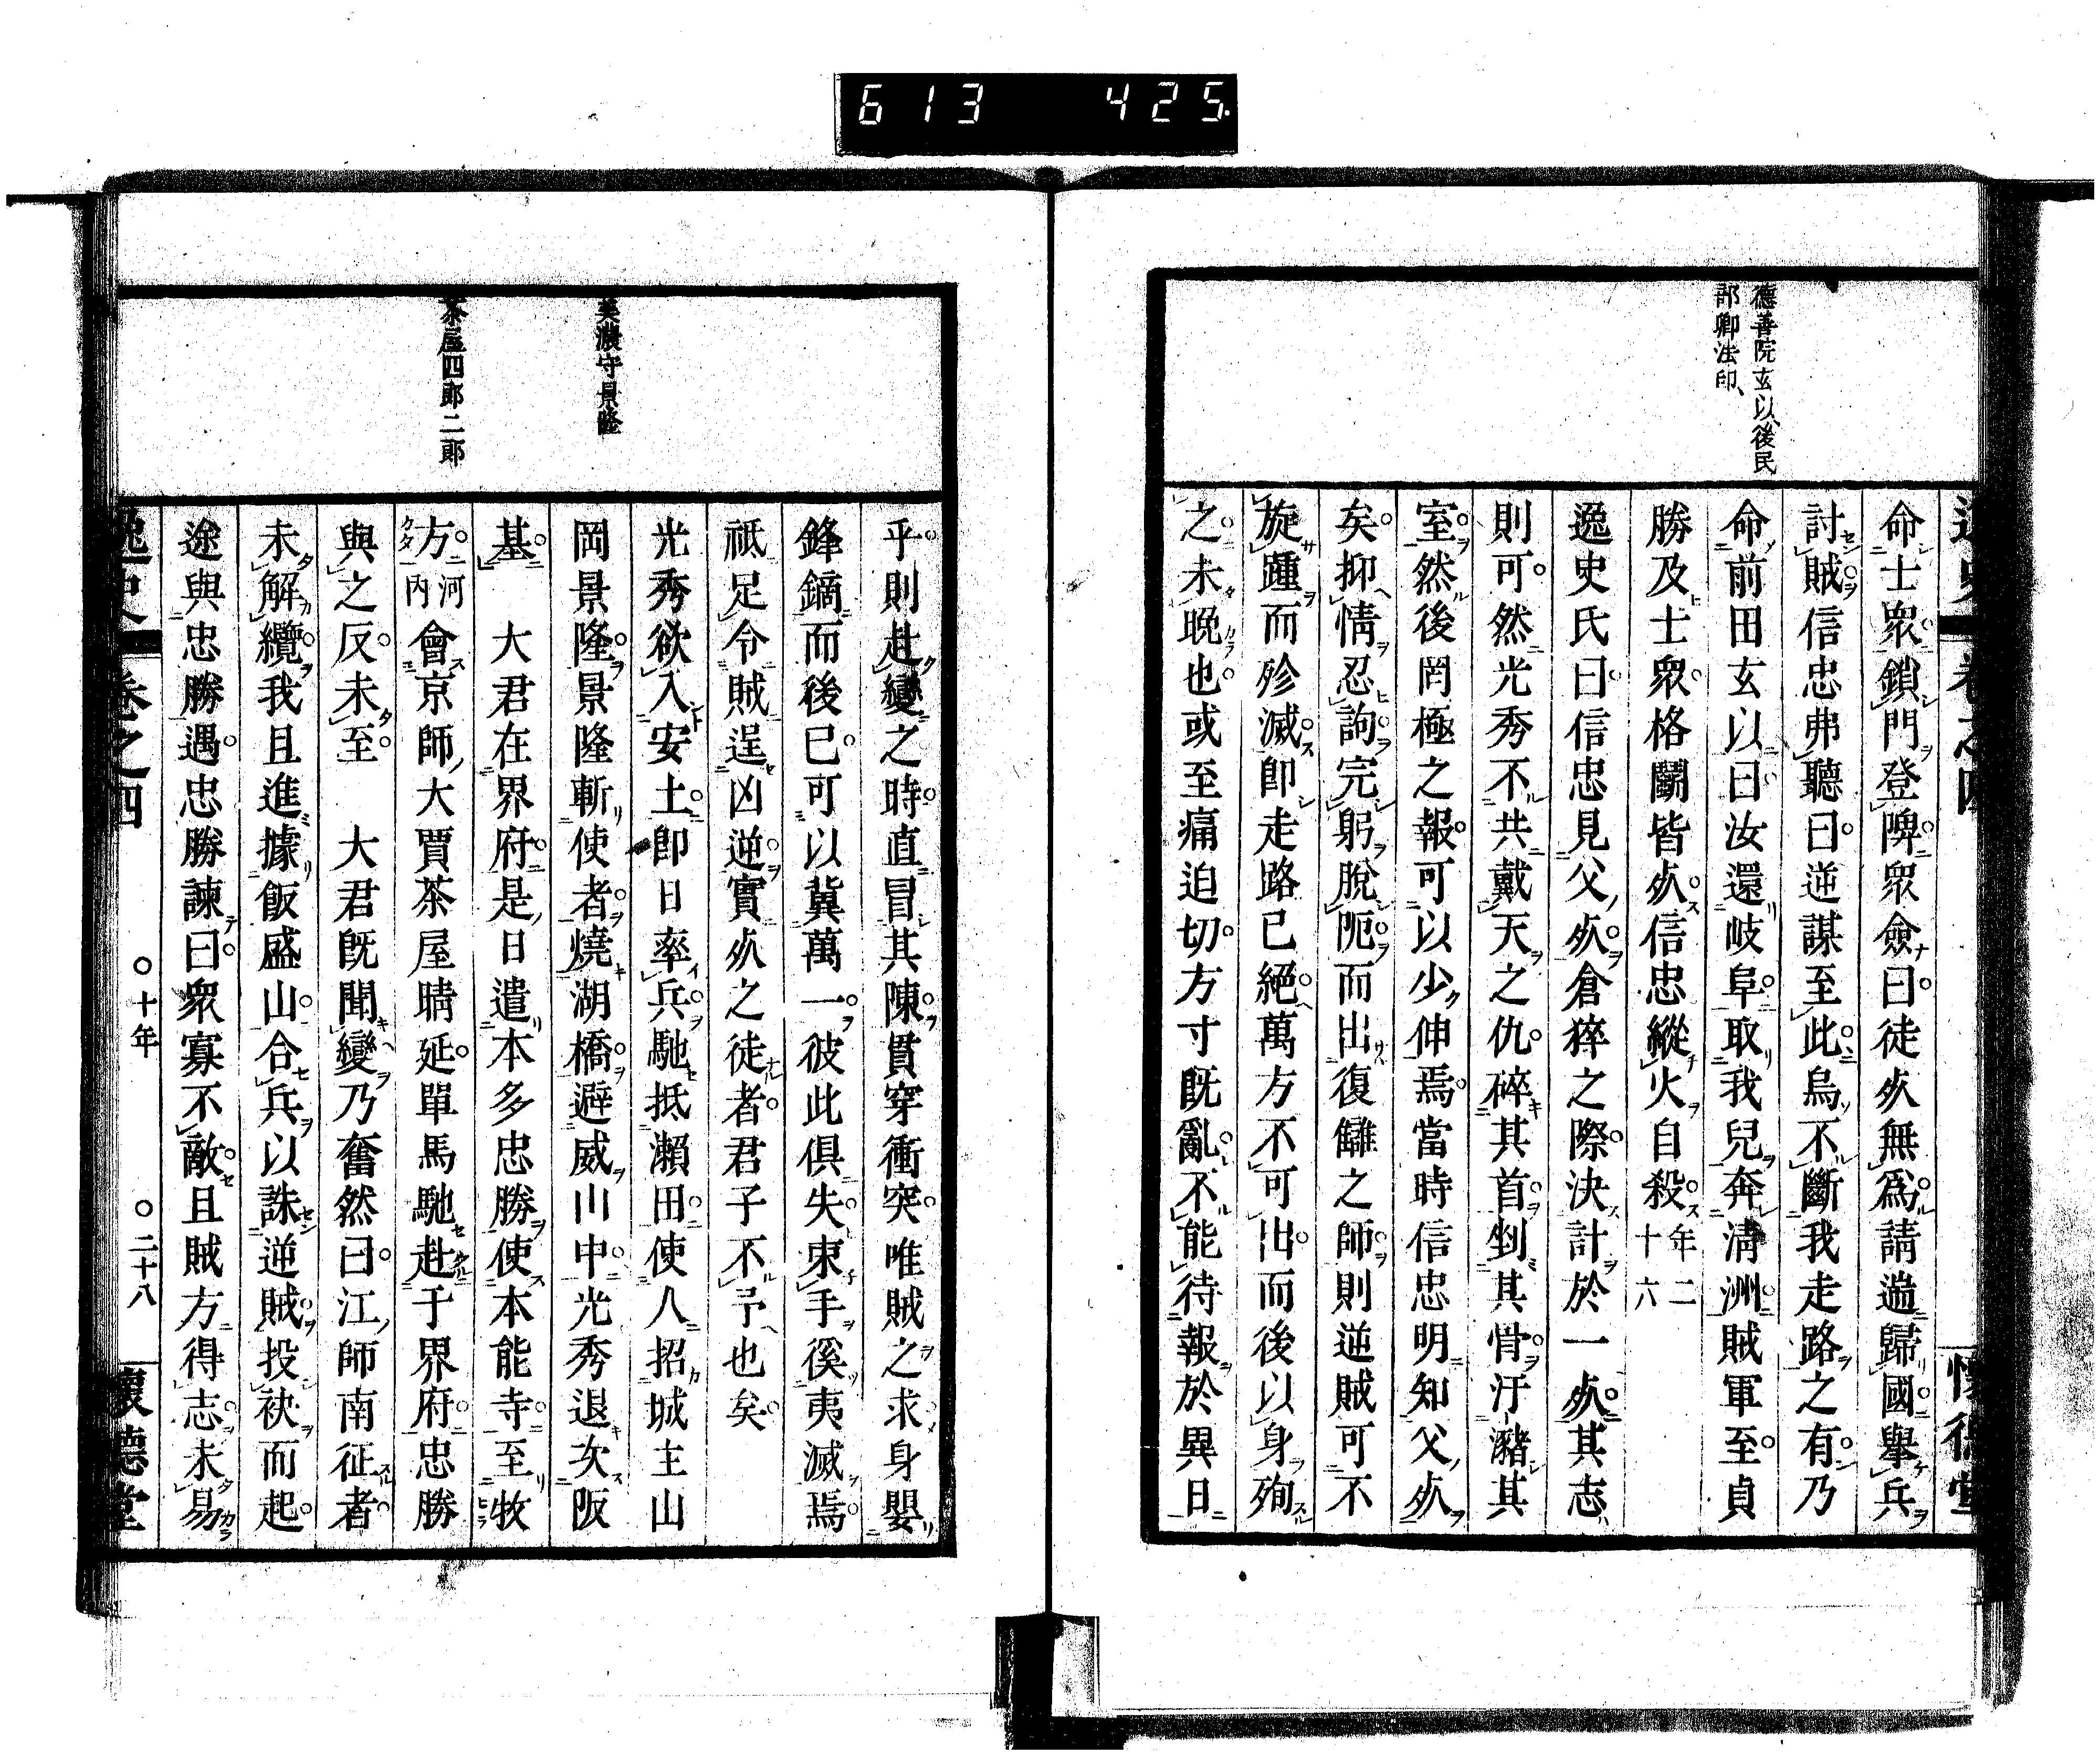 613 425
德善院玄以、後民
部卿法印、
命士眾鎖門登陴眾僉曰徒死無爲請遁歸國擧兵
討賊信忠弗聽曰逆謀至此烏不斷我走路之有乃
命前田玄以曰汝還岐阜取我兒奔淸洲賊軍至貞
勝及士眾格鬭皆死信忠縱火自殺年二十六
逸史氏曰信忠見父死倉猝之際決計於一死其志
則可然光秀不共戴天之仇碎其首剉其骨汙瀦其
室然後罔極之報可以少伸焉當時信忠明知父死
矣抑情忍詢完躬脫阨而出復讎之師則逆賊可不
旋踵而殄滅卽走路已絕萬方不可出而後以身殉
之未晚也或至痛迫切方寸旣亂不能待報於異日
美濃守景隆
茶屋四郎二郎
乎則赴變之時直冒其陳貫穿衝突唯賊之求身嬰
鋒鏑而後已可以冀萬一彼此俱失束手徯夷滅焉
祗足令賊逞凶逆實死之徒者君子不予也矣
光秀欲入安土卽日率兵馳抵瀨田使人招城主山
岡景隆景隆斬使者燒湖橋避威川中光秀退次阪
基　大君在界府是日遣本多忠勝使本能寺至牧
方河內會京師大賈茶屋晴延單馬馳赴于界府忠勝
與之反未至　大君旣聞變乃奮然曰江師南征者
未解纜我且進據飯盛山合兵以誅逆賊投袂而起
途與忠勝遇忠勝諫曰眾寡不敵且賊方得志未易
逸史　卷之四　○十年　○二十八　懷德堂